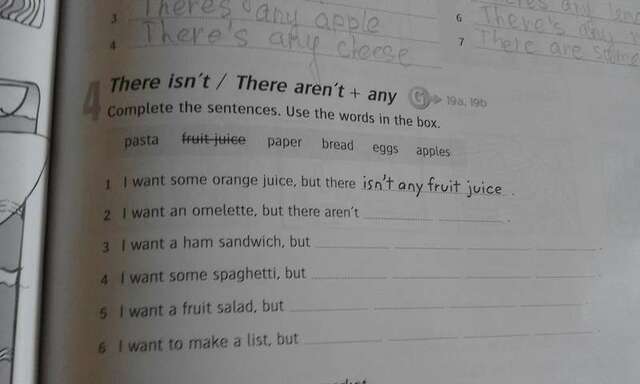 3 There's any apple
4 There's any cleese
6 There's any
7 There are some
4 There isn't / There aren't + any G 19a, 19b
Complete the sentences. Use the words in the box.
pasta fruit juice paper bread eggs apples
1 I want some orange juice, but there isn't any fruit juice.
2 I want an omelette, but there aren't
3 I want a ham sandwich, but
4 I want some spaghetti, but
5 I want a fruit salad, but
6 I want to make a list, but